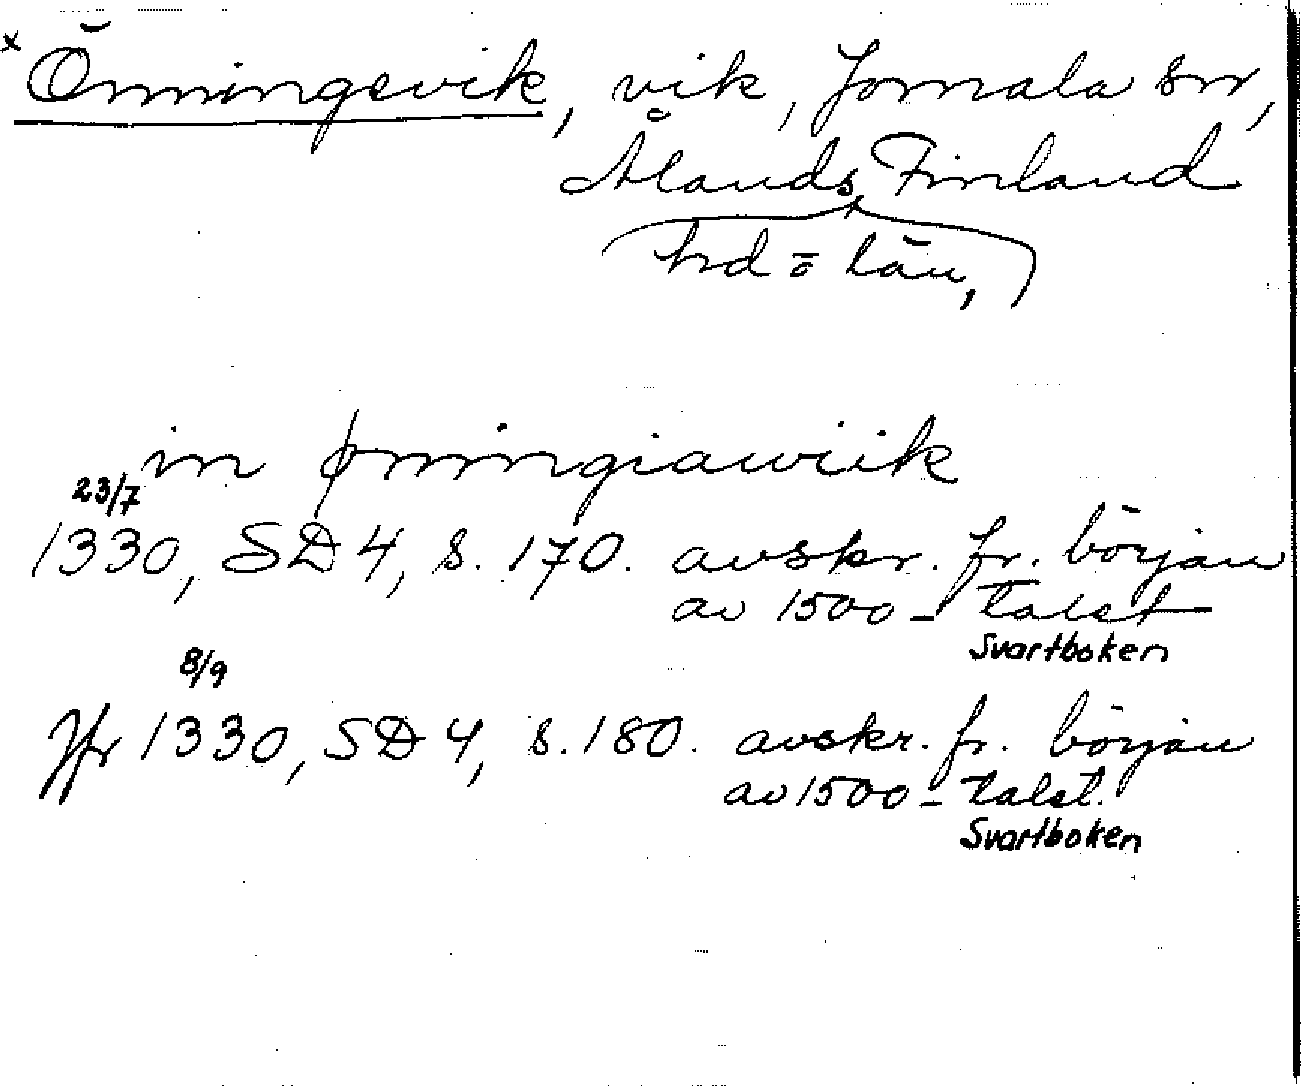 x Önningsvik, vik, Jomala sn,
Ålands Finland
hrd o län,
in ønningiawiik
23/7
1330, SD 4, s. 170. avskr. fr. början
av 1500-talet
Svartboken
8/9
Jfr 1330, SD 4, s. 180. avskr. fr. början
av 1500-talet.
Svartboken